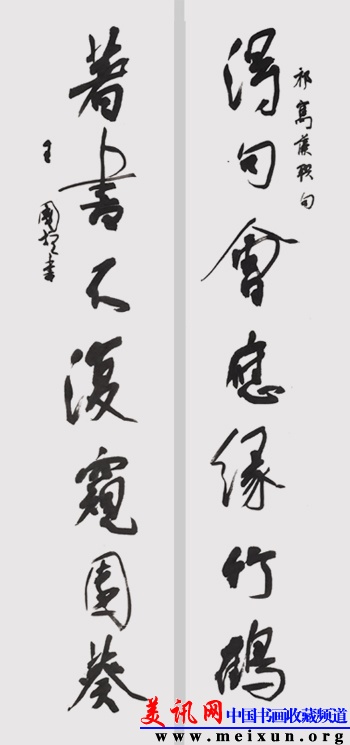 祁寯藻联句
得句會應緣竹鶴
著書不復窺園葵
王國書
美讯网 中国书画收藏频道
www.meixun.org